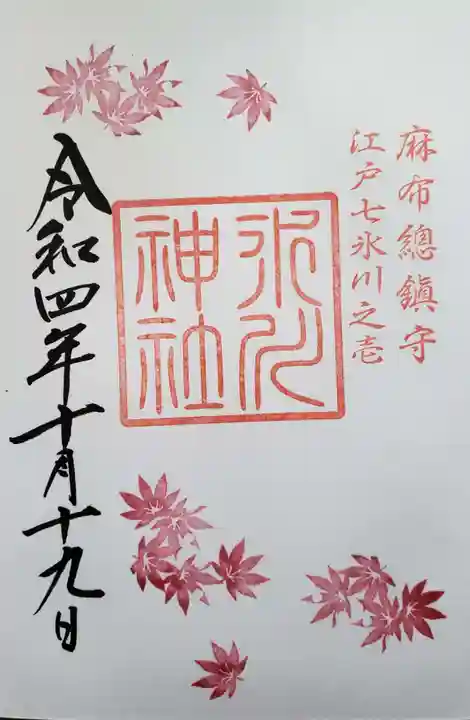 麻布總鎮守
江戸七氷川之壱
氷川
神社
令和四年十月十九日